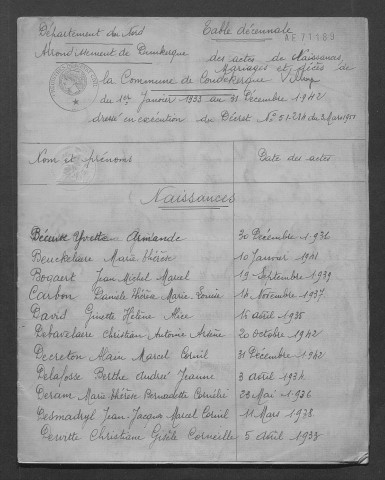 Département du Nord
Table décennale
AE 71189
Arrondissement de Dunkerque
des actes de Naissances,
Mariages et décès de
la Commune de Coudekerque Village
du 1er Janvier 1933 au 31 Décembre 1942
dressé en exécution du Décret No 51-284 du 3 Mars 1951
Nom et prénoms
Date des actes
Naissances
Yvette Armande 30 Décembre 1936
Beuckelaere Marie Thérèse 10 Janvier 1941
Bogaert Jean Michel Marcel 19 Septembre 1939
Carbon Danièle Thérèse Marie-Louise 14 Novembre 1937
David Ginette Hélène Alice 15 Avril 1935
Debavelaere Christian Antoine Arsène 20 Octobre 1942
Decreton Alain Marcel Cornil 31 Décembre 1942
Delafosse Berthe Andrée Jeanne 3 Avril 1934
Deram Marie Thérèse Bernadette Cornélie 28 Mai 1936
Desmadryl Jean-Jacques Marcel Cornil 11 Mars 1938
Christiane Gisèle Corneille 5 Avril 1933